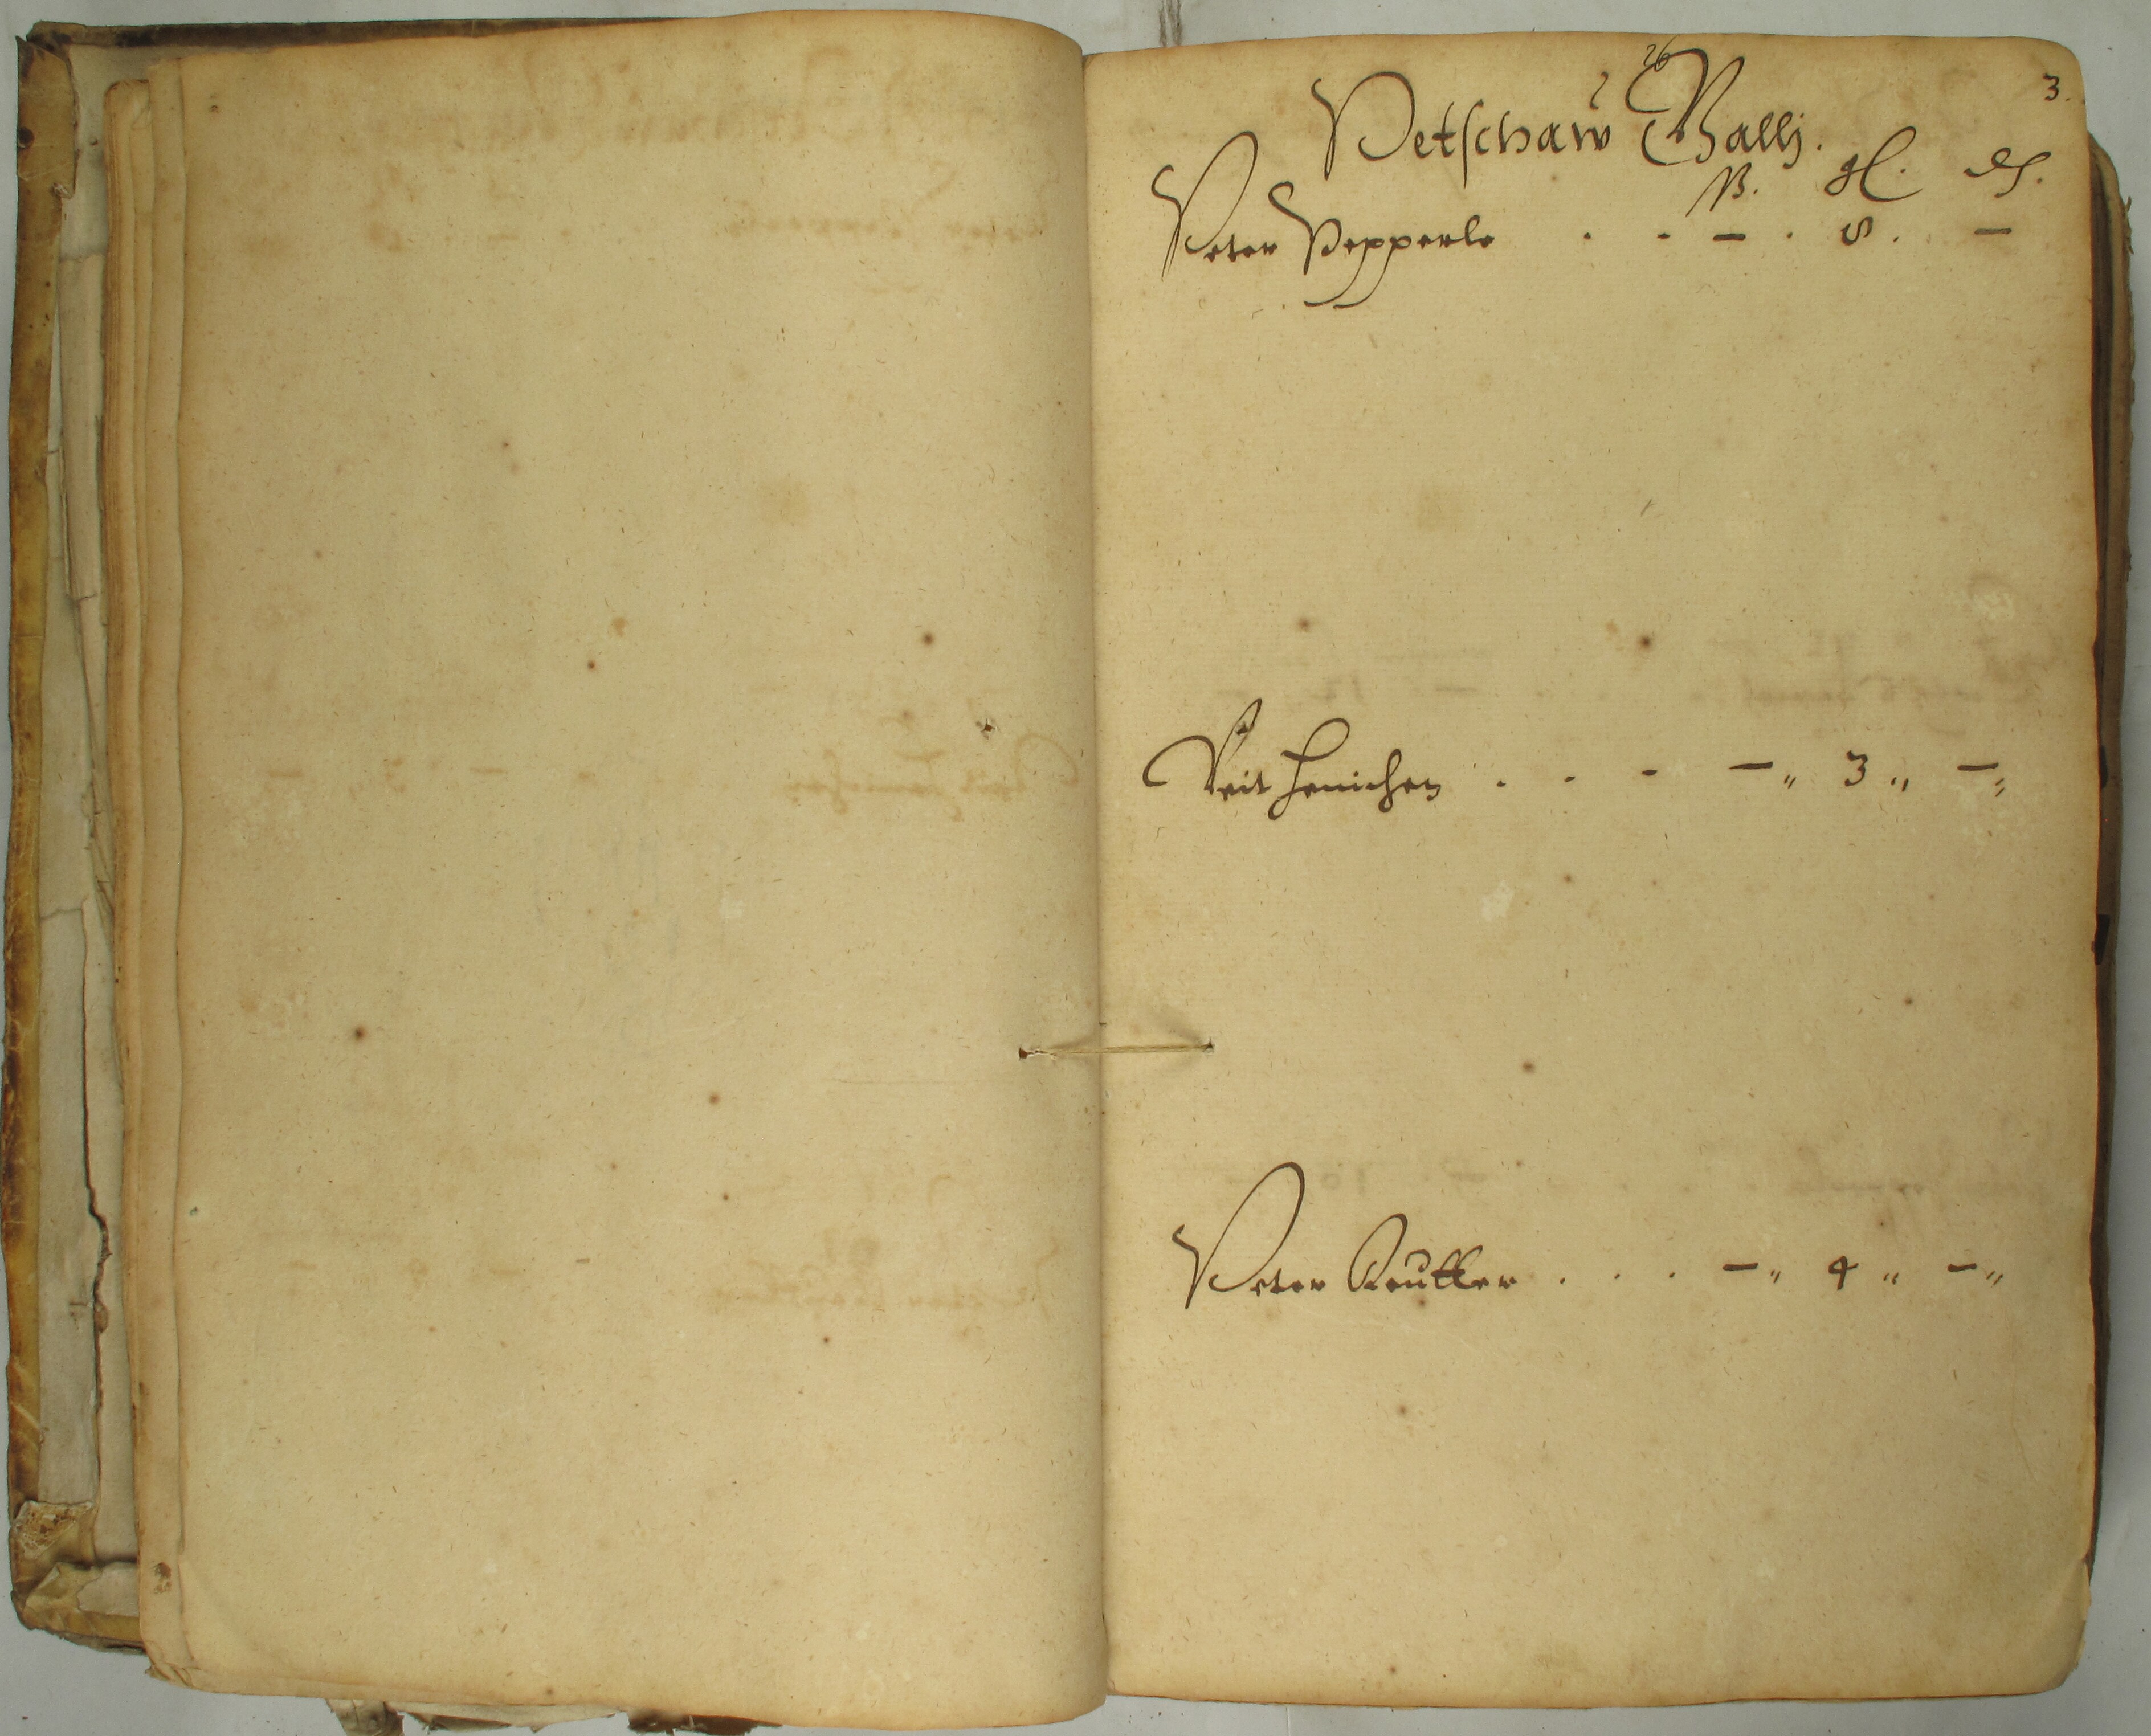 26
3.
Petschaw Gallj.
ß. gl. ₰.
Peter Pepperle . . — . 8 . —
Veit Henichen . . - — „ 3 „ — „
Peter Reutter . . . — „ 4 „ — „